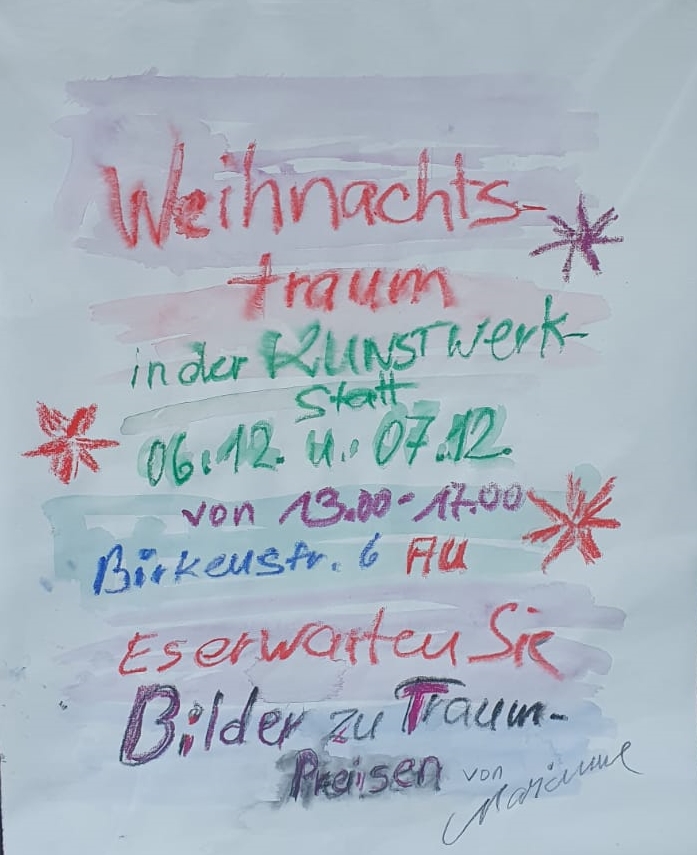 Weihnachts-
traum
in der KUNSTWerk-
statt
06.12. u. 07.12.
von 13.00-17.00
Birkenstr. 6 AU
Es erwarten Sie
Bilder zu Traum-
Preisen von
Marianne